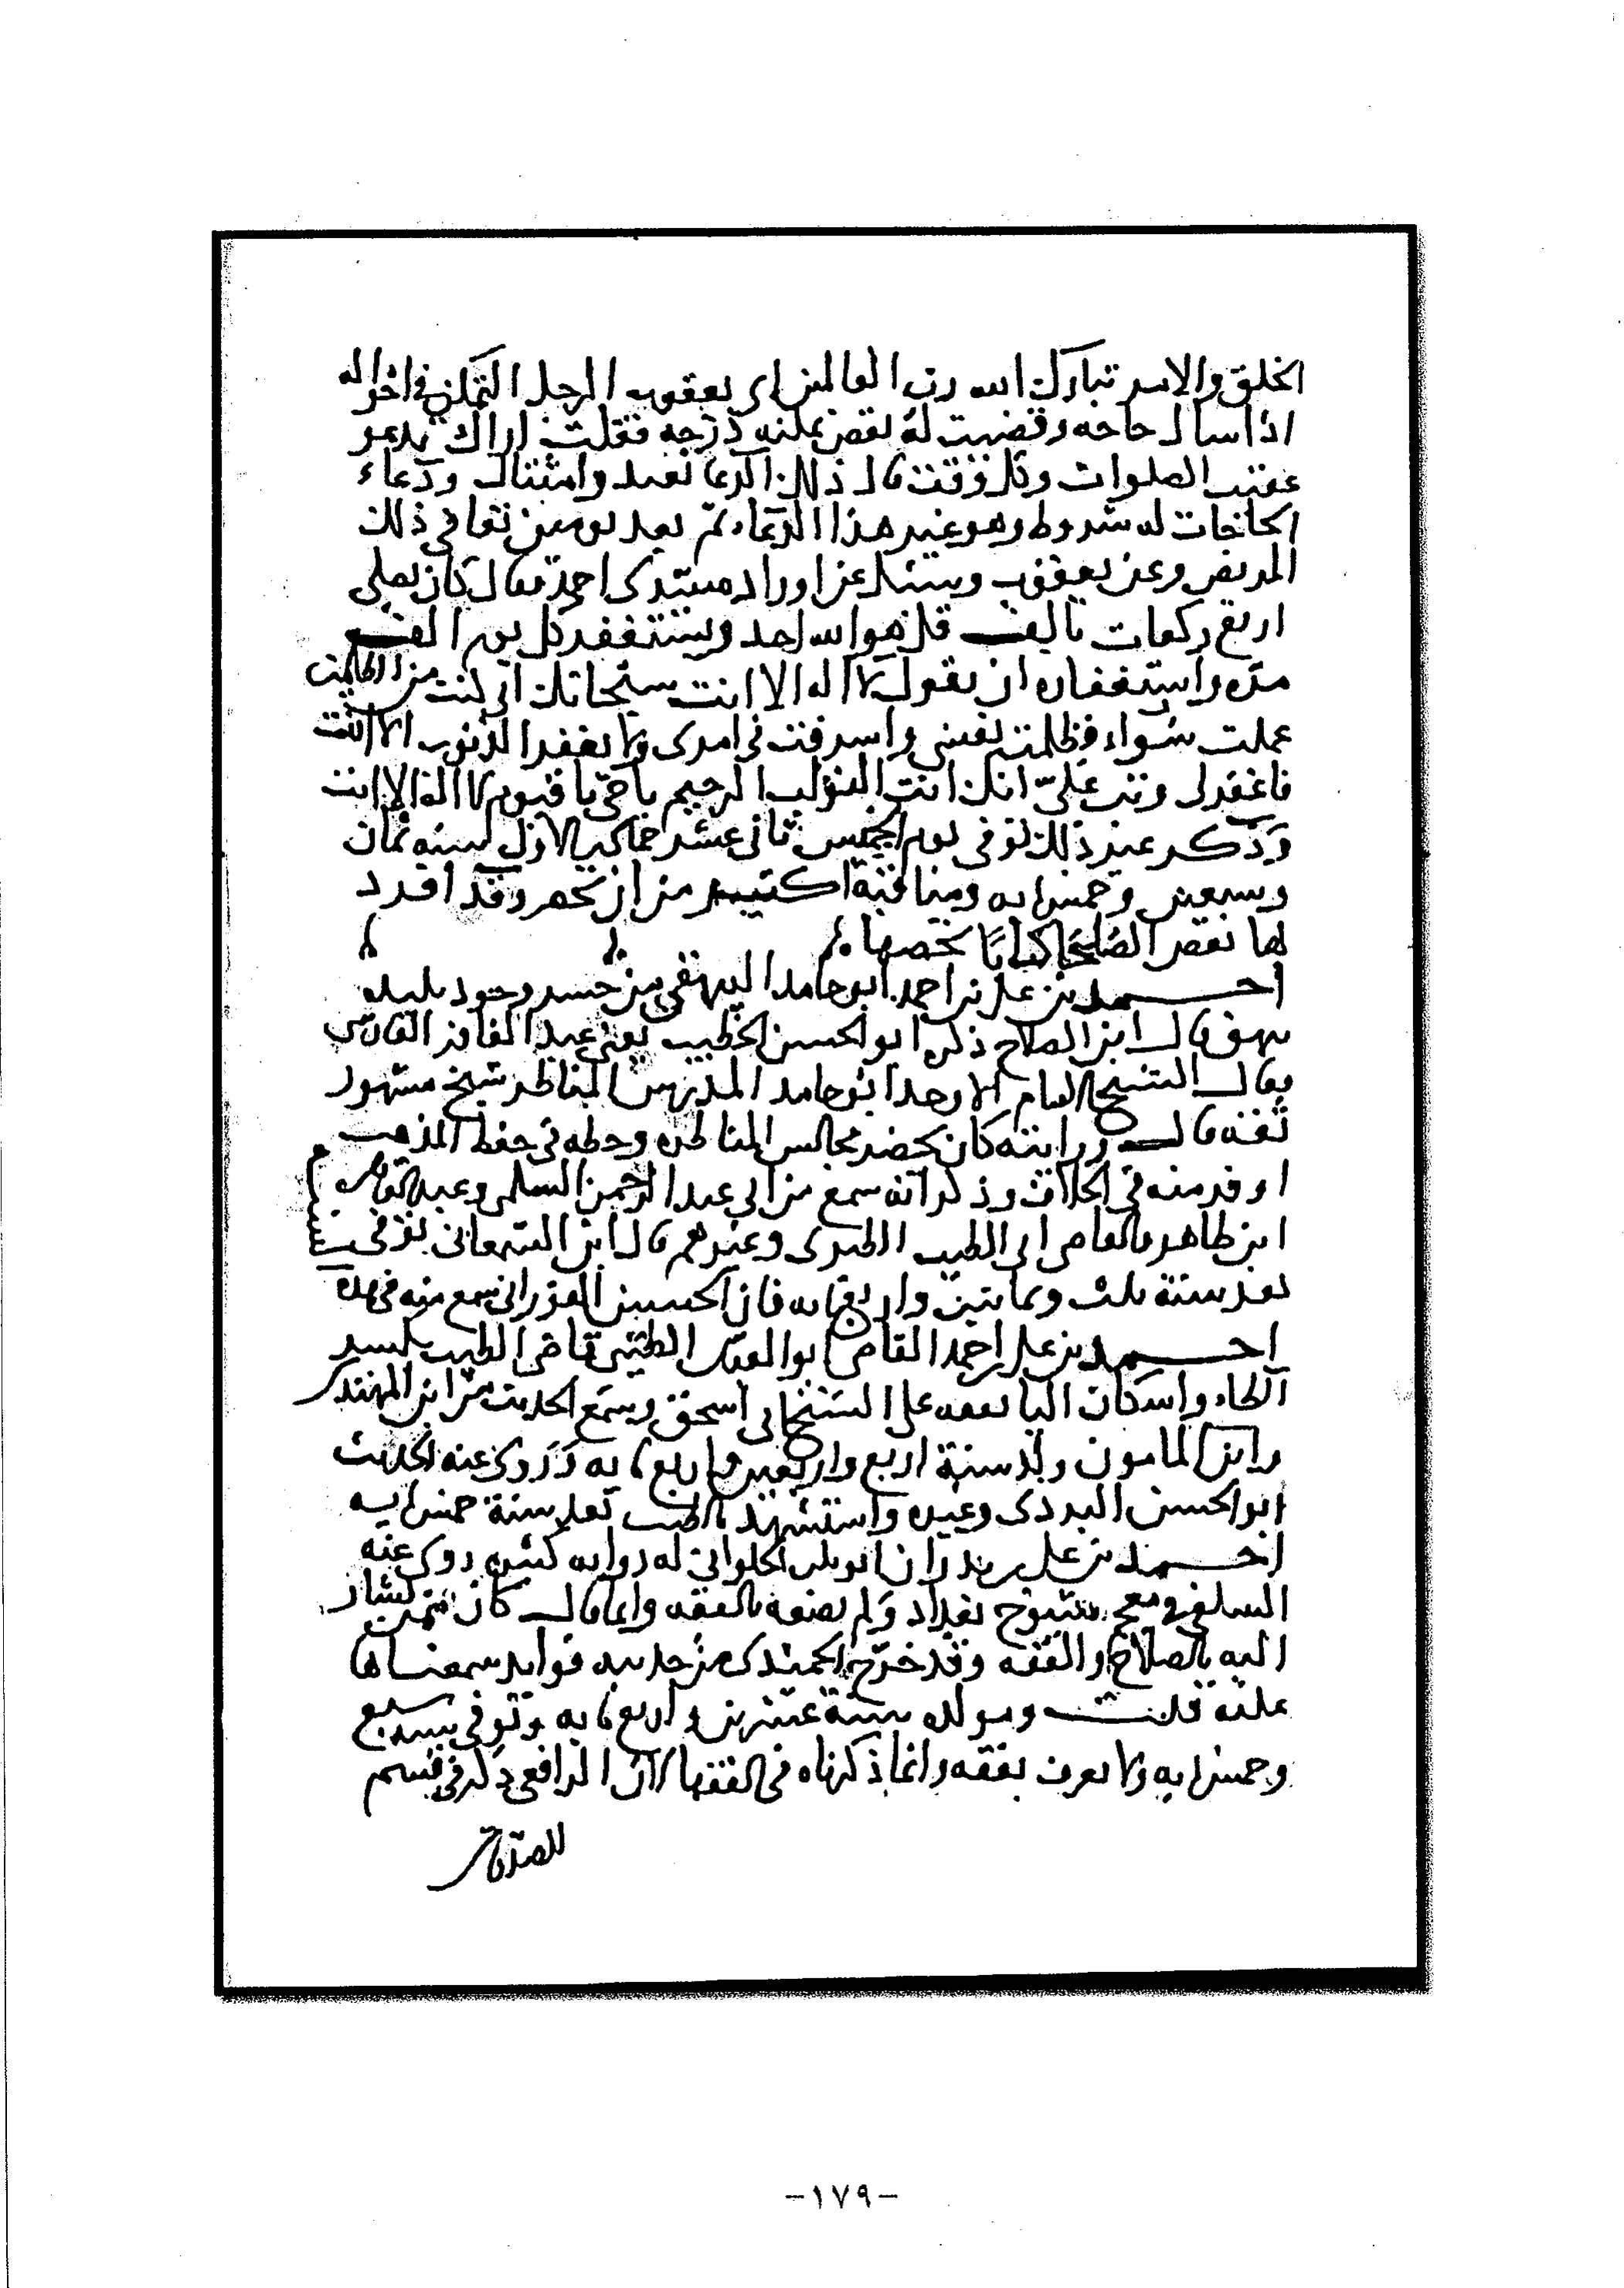 الخلق والامر تبارك الله رب العالمين اي يعقوب الرجل المتمكن في احواله
اذا سال حاجه وقضيت له نقص تمكنه درجه فقلت اراك تدعو
عقيب الصلوات وكل وقت قال ذلك الدعا تعبد وامتثال ودعاء
الحاجات له شروط وهو غير هذا الدعاء ثم بعد يومين تعافى ذلك
المريض وعن يعقوب وسئل عن اوراد سيدى احمد فقال كان يصلى
اربع ركعات بالف قل هو الله احد ويستغفر كل يوم الف
مره واستغفاره ان يقول لا اله الا انت سبحانك انى كنت من الظالمين
عملت سواء وظلمت نفسى واسرفت في امرى ولا يغفر الذنوب الا انت
فاغفر لى وتب علىّ انك انت التواب الرحيم يا حى يا قيوم لا اله الا انت
وذكر غير ذلك توفى يوم الخميس ثانى عشر جمادى الاولى سنه ثمان
وسبعين وخمسمايه ومناقبه اكثر من ان تحصر وقد افرد
لها بعض الصلحا كتابا يخصها
احمد بن على بن احمد ابو حامد البيهقى من خسروجرد بليده
بيهق قال ابن الصلاح ذكره ابو الحسن الخطيب يعنى عبد الغافر الفارسى
فقال الشيخ الامام الاوحد ابو حامد المدرس المناظر شيخ مشهور
ثقه قال ورايته كان يحضر مجالس المناظره وحظه في حفظ المذهب
اوفر منه في الخلاف وذكر انه سمع من ابى عبد الرحمن السلمى وعبد القاهر
ابن طاهر والقاضى ابى الطيب الطبرى وغيرهم قال ابن السمعانى توفى
بعد سنة ثلث وثمانين واربعمايه فان الحسين الفورانى سمع منه في هذه
احمد بن على بن احمد القاضى ابو العباس الطيبى قاضى الطيب بكسر
الطاء واسكان اليا تفقه على الشيخ ابى اسحق وسمع الحديث من ابن المهتدى
وابن المامون ولد سنة اربع واربعين واربعمايه وروى عنه الحديث
ابو الحسن اليزدى وغيره واستشهد بالطيب بعد سنة خمسمايه
احمد بن على بن بدران ابو بكر الحلوانى له روايه كثيره روى عنه
السلفى في معجم شيوخ بغداد ولم يصفه بالفقه وانما قال كان ممن يشار
اليه بالصلاح والفقه وقد خرج الحميدى من حديثه فوايد سمعناها
عليه قلت ومولده سنة عشرين واربعمايه وتوفى سنه سبع
وخمسمايه ولا يعرف بفقه وانما ذكرناه في الفقها لان الرافعى ذكر في قسم
الصدقات
-١٧٩-